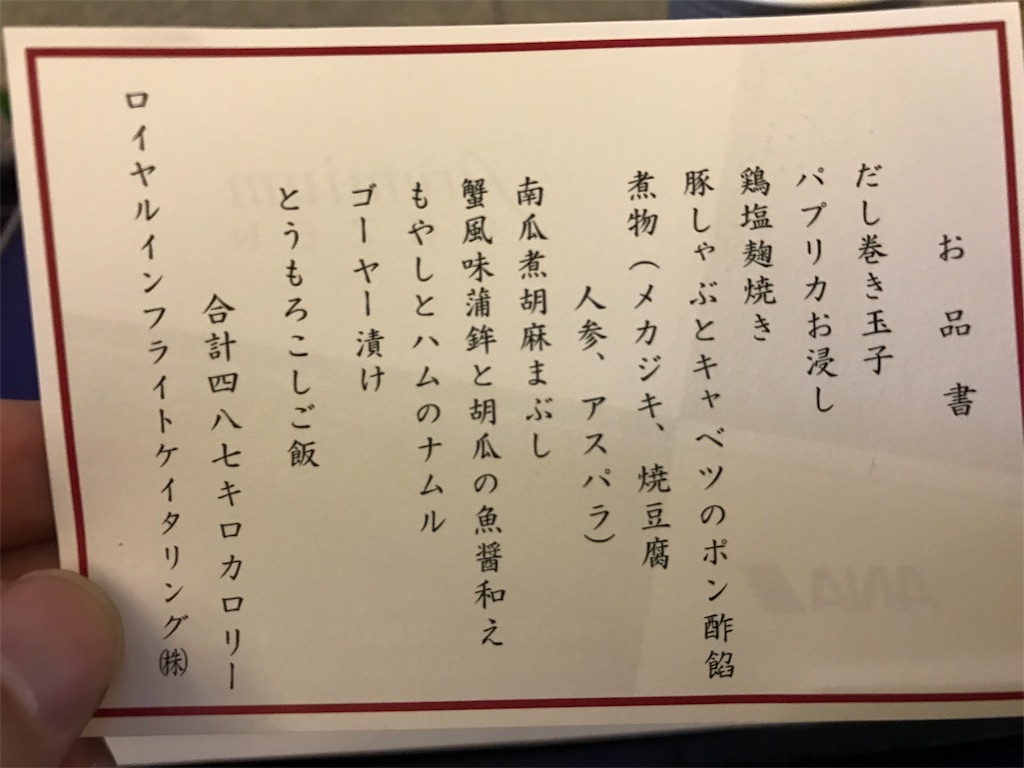 お品書
だし巻き玉子
パプリカお浸し
鶏塩麹焼き
豚しゃぶとキャベツのポン酢餡
煮物（メカジキ、焼豆腐
人参、アスパラ）
南瓜煮胡麻まぶし
蟹風味蒲鉾と胡瓜の魚醤和え
もやしとハムのナムル
ゴーヤー漬け
とうもろこしご飯
合計四八七キロカロリー
ロイヤルインフライトケイタリング㈱
Premium
ANA